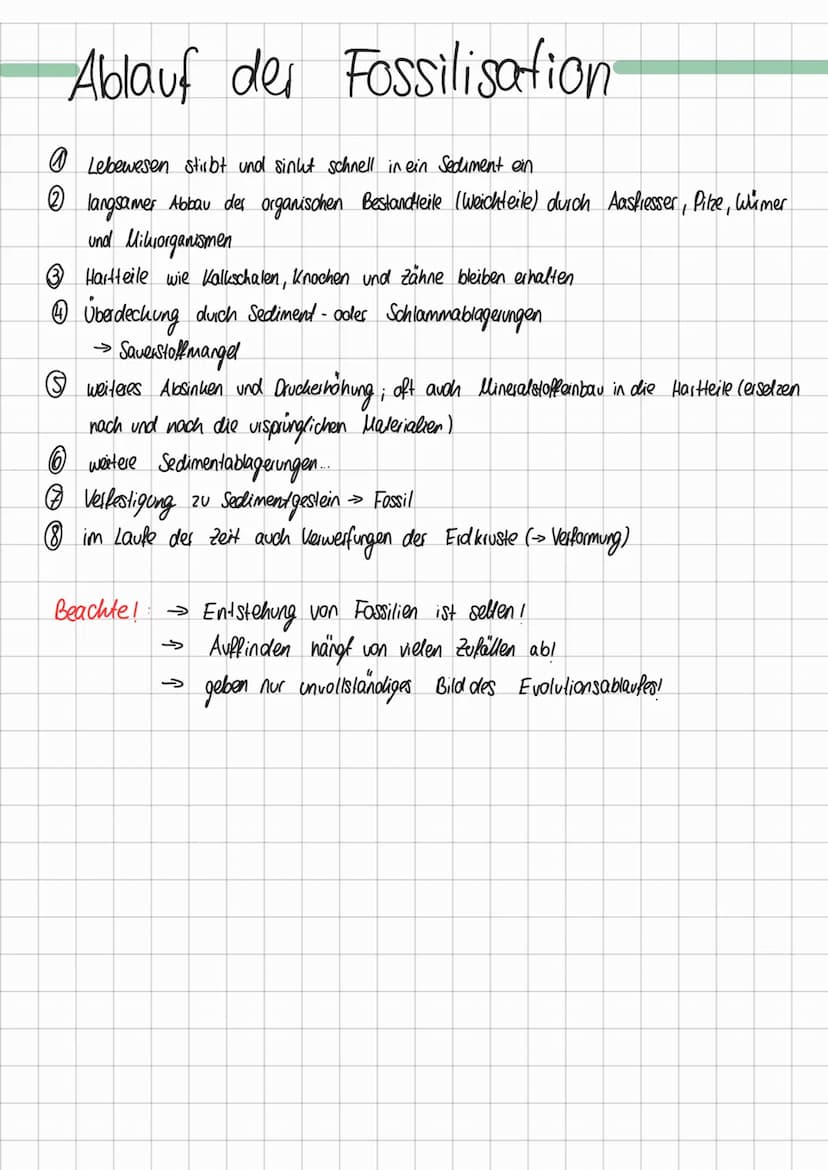 Ablauf der Fossilisation
① Lebewesen stirbt und sinkt schnell in ein Sediment ein
② langsamer Abbau der organischen Bestandteile (Weichteile) durch Aasfresser, Pilze, Würmer
und Mikroorganismen
③ Hartteile wie Kalkschalen, Knochen und Zähne bleiben erhalten
④ Überdeckung durch Sediment- oder Schlammablagerungen
→ Sauerstoffmangel
⑤ weiteres Absinken und Druckerhöhung; oft auch Mineralstoffeinbau in die Hartteile (ersetzen
nach und nach die ursprünglichen Materialien)
⑥ weitere Sedimentablagerungen...
⑦ Verfestigung zu Sedimentgestein → Fossil
⑧ im Laufe der Zeit auch Verwerfungen der Erdkruste (→ Verformung)
Beachte!: → Entstehung von Fossilien ist selten!
→ Auffinden hängt von vielen Zufällen ab!
→ geben nur unvollständiges Bild des Evolutionsablaufes!